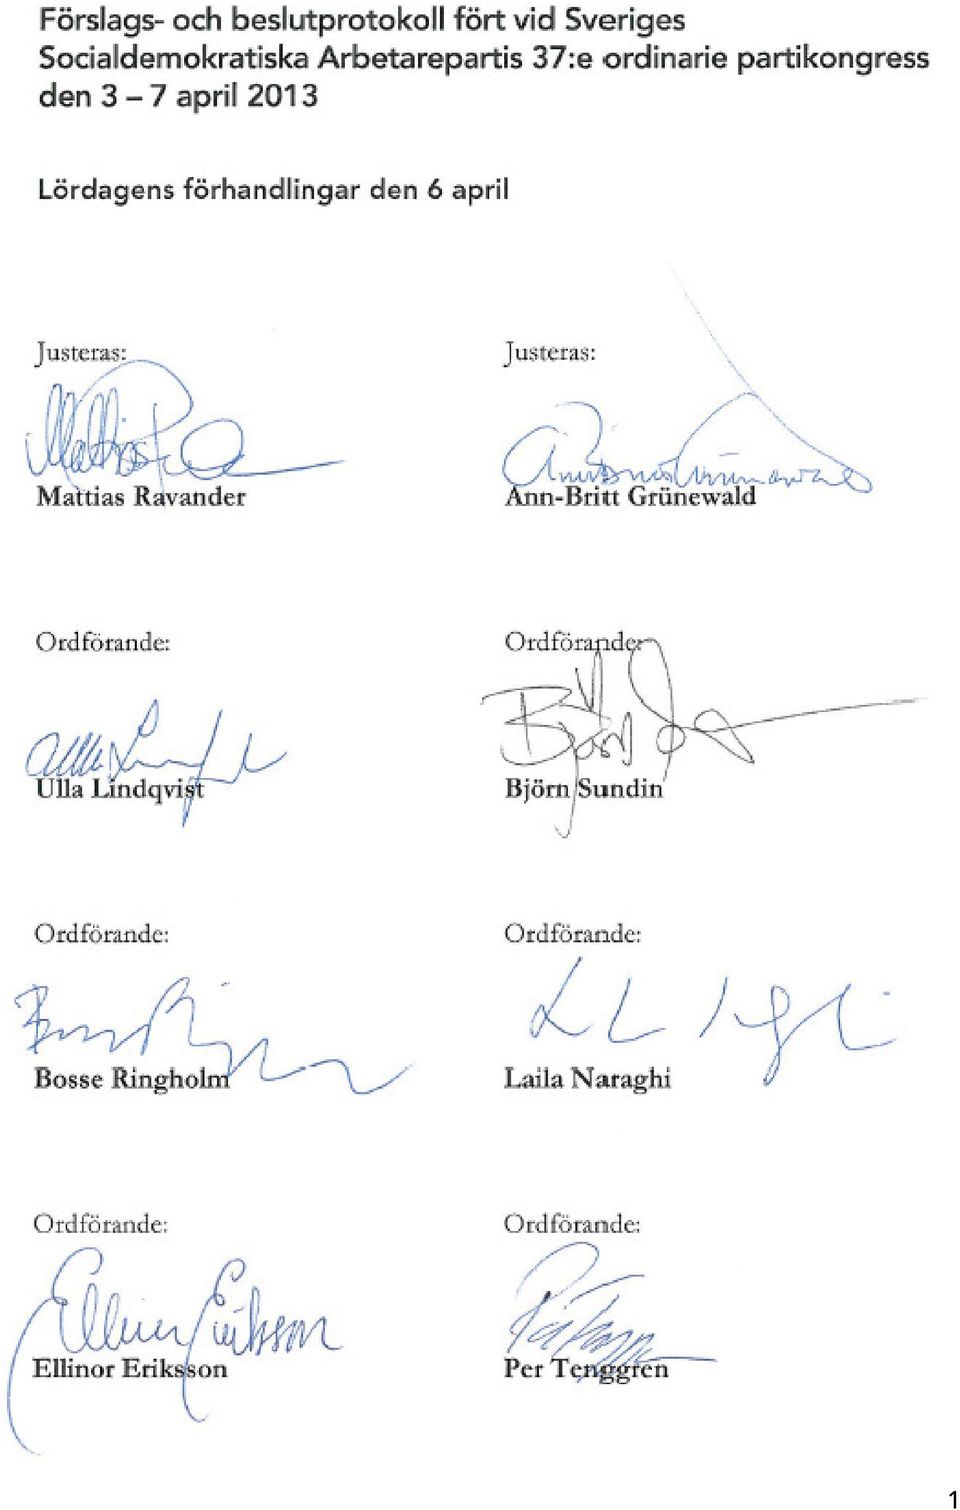 Förslags- och beslutprotokoll fört vid Sveriges
Socialdemokratiska Arbetarepartis 37:e ordinarie partikongress
den 3 – 7 april 2013
Lördagens förhandlingar den 6 april
Justeras:
Justeras:
Mattias Ravander
Ann-Britt Grünewald
Ordförande:
Ordförande:
Ulla Lindqvist
Björn Sundin
Ordförande:
Ordförande:
Bosse Ringholm
Laila Naraghi
Ordförande:
Ordförande:
Ellinor Eriksson
Ellinor Eriksson
Per Tenggren
1